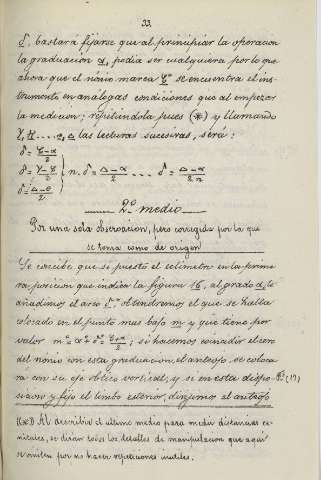 33
δ. bastará fijarse que al principiar la operacion
la graduacion α, podia ser cualquiera por lo que
ahora que el nónio marca &° se encuentra el ins-
trumento en análogas condiciones que al empezar
la medicion; repitiendola pues (*) y llamando
las lecturas sucesivas, será:
2º medio
Por una sola observacion, pero corregida por la que
se toma como de origen
Se concibe que si puesto el eclímetro en la prime-
ra posicion que indica la figura 16, al grado α, le
añadimos el arco δ, obtendremos el que se halla
colocado en el punto mas bajo m y que tiene por
valor m = ; si hacemos coincidir el cero
del nonio con esta graduacion, el anteojo se coloca-
rá con su eje óptico vertical, y si en esta dispo- (17)
sicion y fijo el limbo exterior, dirijimos el anteojo
Al describir el último medio para medir distancias ce-
nitales, se dirán todos los detalles de manipulacion que aquí
se omiten por no hacer repeticiones inútiles.